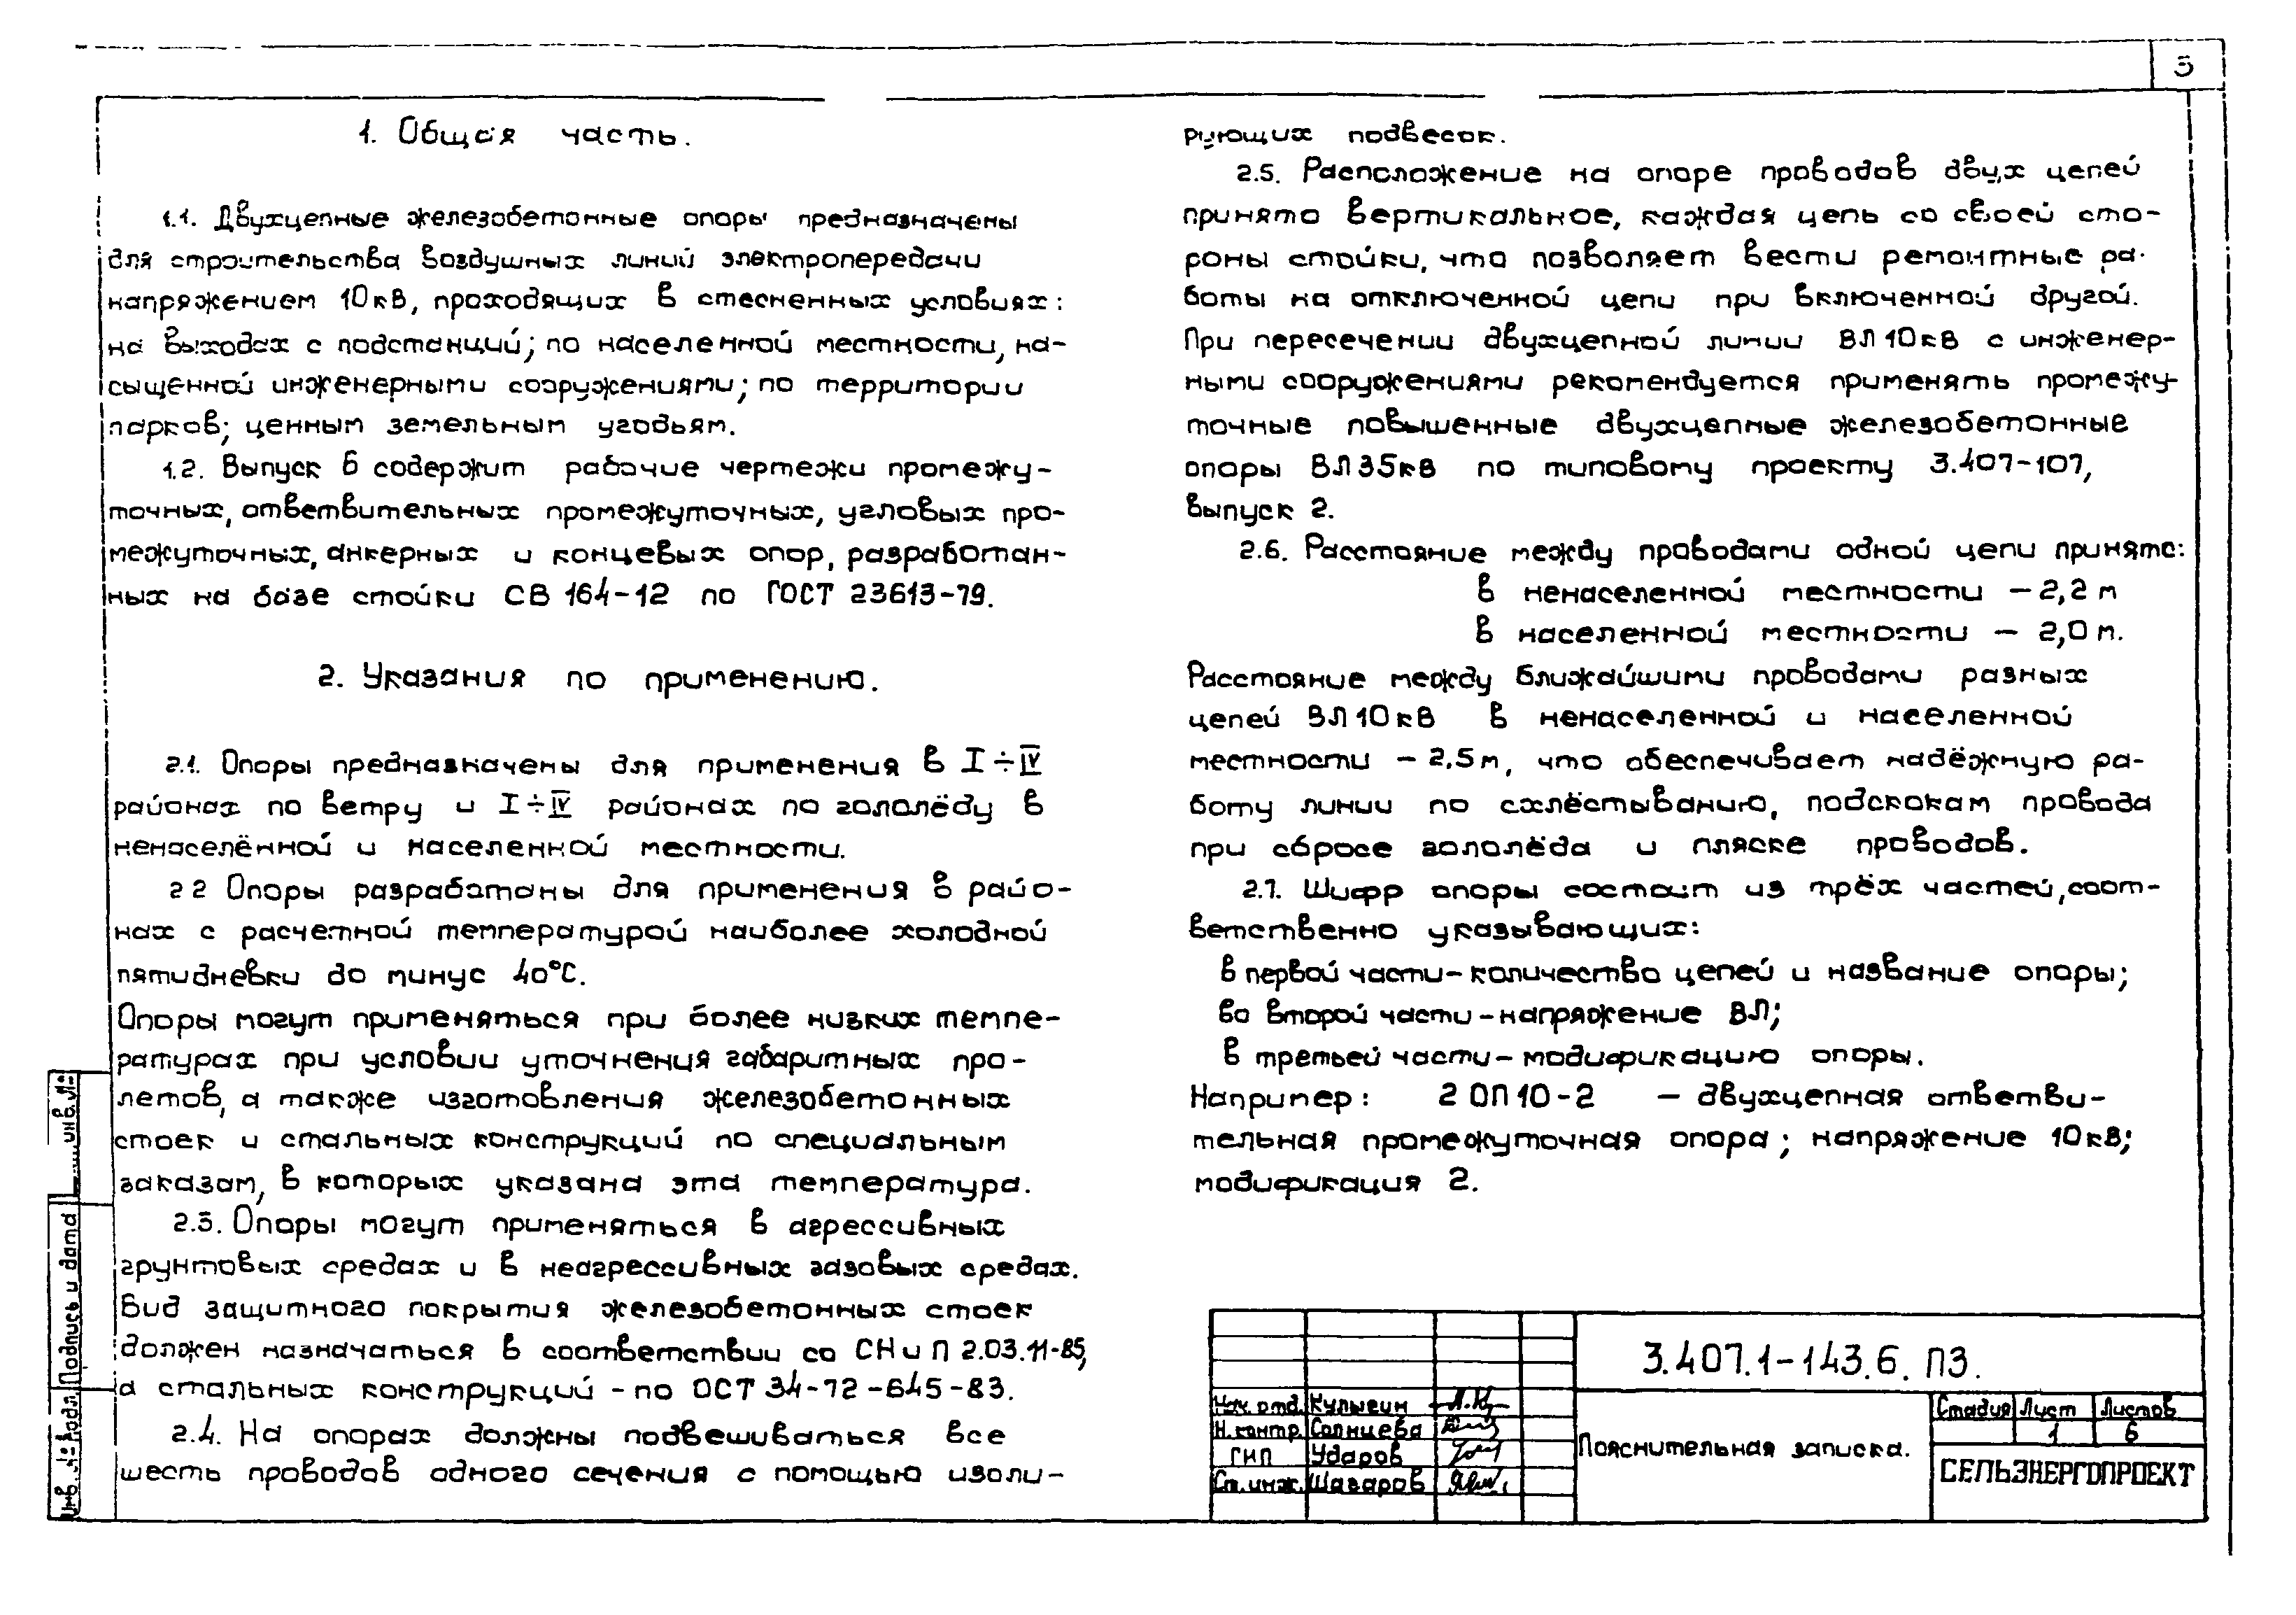 3
1. Общая часть.
1.1. Двухцепные железобетонные опоры предназначены
для строительства воздушных линий электропередачи
напряжением 10кВ, проходящих в стесненных условиях:
на выходах с подстанций; по населенной местности, на-
сыщенной инженерными сооружениями; по территории
парков; ценным земельным угодьям.
1.2. Выпуск 6 содержит рабочие чертежи промежу-
точных, ответвительных промежуточных, угловых про-
межуточных, анкерных и концевых опор, разработан-
ных на базе стойки СВ 164-12 по ГОСТ 23613-79.
2. Указания по применению.
2.1. Опоры предназначены для применения в I÷IV
районах по ветру и I÷IV районах по гололёду в
ненаселённой и населенной местности.
2 2 Опоры разработаны для применения в райо-
нах с расчетной температурой наиболее холодной
пятидневки до минус 40°С.
Опоры могут применяться при более низких темпе-
ратурах при условии уточнения габаритных про-
летов, а также изготовления железобетонных
стоек и стальных конструкций по специальным
заказам, в которых указана эта температура.
2.3. Опоры могут применяться в агрессивных
грунтовых средах и в неагрессивных газовых средах.
Вид защитного покрытия железобетонных стоек
должен назначаться в соответствии со СНиП 2.03.11-85,
а стальных конструкций - по ОСТ 34-72-645-83.
2.4. На опорах должны подвешиваться все
шесть проводов одного сечения с помощью изоли-
рующих подвесок.
2.5. Расположение на опоре проводов двух цепей
принято вертикальное, каждая цепь со своей сто-
роны стойки, что позволяет вести ремонтные ра-
боты на отключенной цепи при включенной другой.
При пересечении двухцепной линии ВЛ 10кВ с инженер-
ными сооружениями рекомендуется применять промежу-
точные повышенные двухцепные железобетонные
опоры ВЛ 35кВ по типовому проекту 3.407-107,
выпуск 2.
2.6. Расстояние между проводами одной цепи принято:
в ненаселенной местности - 2,2 м
в населенной местности - 2,0 м.
Расстояние между ближайшими проводами разных
цепей ВЛ 10кВ в ненаселенной и населенной
местности - 2.5 м, что обеспечивает надёжную ра-
боту линии по схлёстыванию, подскокам провода
при сбросе гололёда и пляске проводов.
2.7. Шифр опоры состоит из трёх частей, соот-
ветственно указывающих:
в первой части - количество цепей и название опоры;
во второй части - напряжение ВЛ;
в третьей части - модификацию опоры.
Например: 2 ОП 10-2 - двухцепная ответви-
тельная промежуточная опора; напряжение 10кВ;
модификация 2.
3.407.1-143.6. ПЗ.
Нач. отд. Кулыгин
Н.контр. Солнцева
ГИП Ударов
Ст. инж. Шагаров
Пояснительная записка.
Стадия Лист Листов
1 6
СЕЛЬЭНЕРГОПРОЕКТ
Инв. № подл. Подпись и дата инв. №